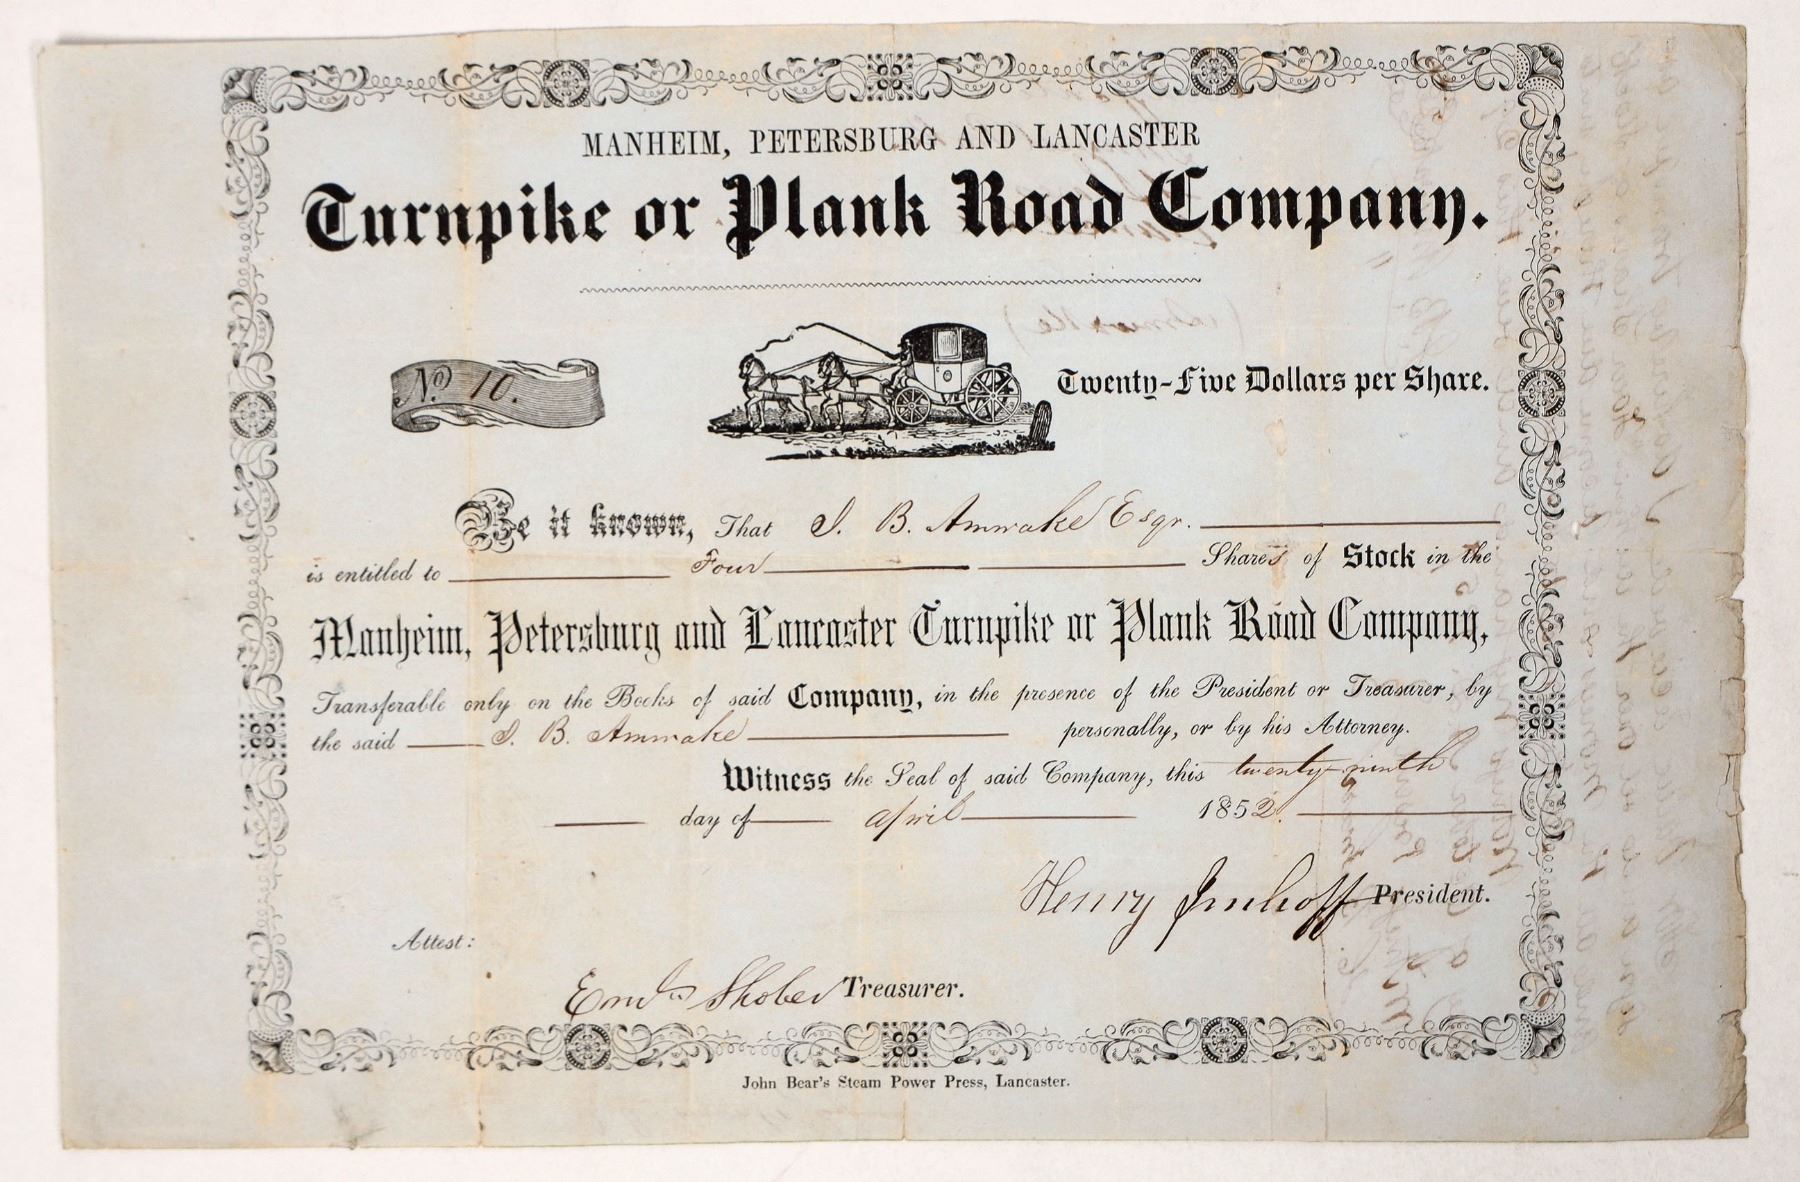 MANHEIM, PETERSBURG AND LANCASTER
Turnpike or Plank Road Company.
No. 10.
Twenty-Five Dollars per Share.
Be it known, That J. B. Amwake Esqr.
is entitled to Four Shares of Stock in the
Manheim, Petersburg and Lancaster Turnpike or Plank Road Company,
Transferable only on the Books of said Company, in the presence of the President or Treasurer, by
the said J. B. Amwake personally, or by his Attorney.
Witness the Seal of said Company, this twenty-ninth
day of April 1852.
Henry Imhoff President.
Attest:
Shober Treasurer.
John Bear's Steam Power Press, Lancaster.